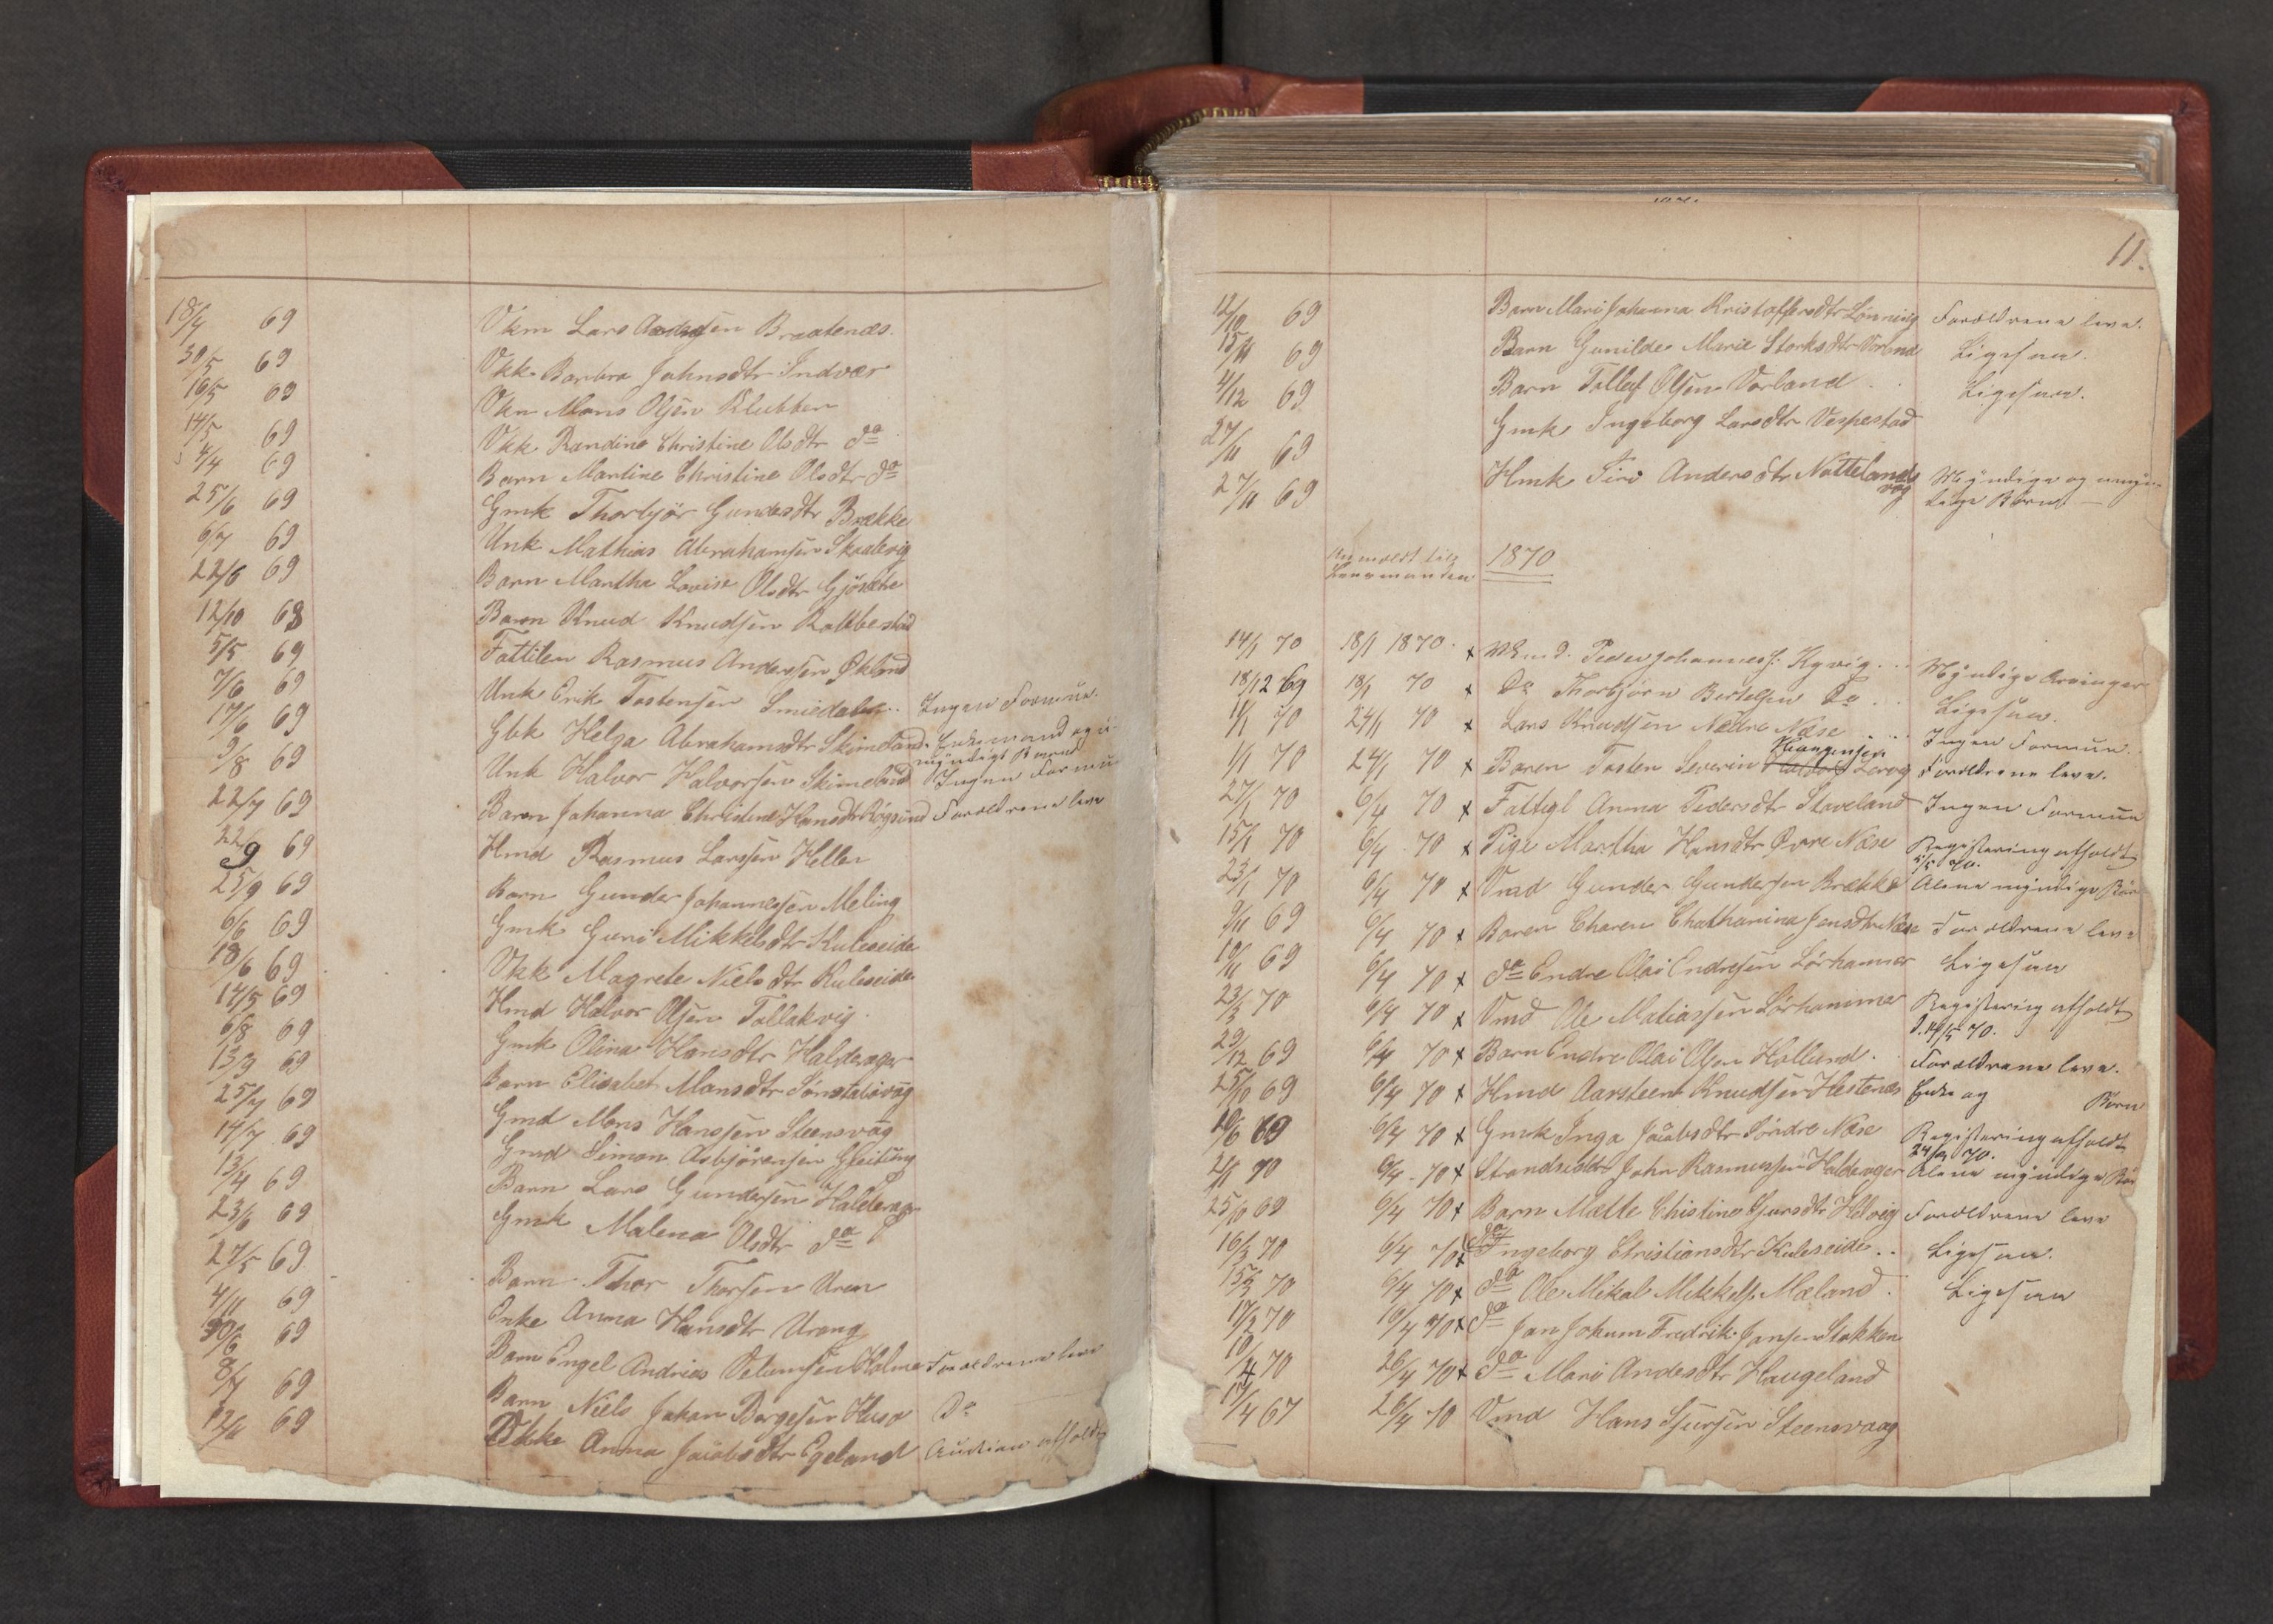 18/4 69 Vkm Lars Andersen Braatenæs.
30/5 69 Vkk Barbra Johnsdtr Indvær
16/5 69 Vkm Mons Olsen Klubben
14/5 69 Vkk Randine Christine Olsdtr do
4/4 69 Barn Martine Christine Olsdtr do
25/6 69 Gmk Thorbjør Gundersdtr Brække
6/7 69 Unk Mathias Abrahamsen Skaalevig
22/6 69 Barn Martha Lovise Olsdtr Gjøsæter
12/10 68 Barn Knud Knudsen Rabbestad
5/5 69 Fattilem Rasmus Andersen Økland
7/6 69 Unk Erik Tostensen Smiedalen.. Ingen Formue.
17/6 69 Gbk Helga Abrahamsdtr Skimeland. Enkemand og u-
myndigt Barn
9/8 69 Unk Halvor Halvorsen Skimeland Ingen Formue
22/7 69 Barn Johanna Christine Hansdtr Røgsund Forældrene leve
22/9 69 Hmd Rasmus Larssen Heller
25/9 69 Barn Gunder Johannesen Meling
6/6 69 Gmk Guri Mikkelsdtr Kuleseide
18/6 69 Vkk Magrete Nielsdtr Kuleseide
14/5 69 Hmd Halvor Olsen Tollakvig
6/8 69 Gmk Olina Hansdtr Halderager
13/9 69 Barn Elisabet Monsdtr Sønstabøvåg
25/7 69 Gmd Mons Hanssen Steensvåg
14/7 69 Gmd Simon Asbjørensen Gleitung
13/4 69 Barn Lars Gundersen Halderager
23/6 69 Gmk Malena Olsdtr do
27/5 69 Barn Thor Thorsen Uren
4/11 69 Enke Anna Hansdtr Urang
30/6 69 Barn Engel Andrias Velumsen Holme Forældrene leve
8/7 69 Barn Niels Johan Børgesen Huso Do
12/11 69 Vkke Anna Jacobsdtr Egeland Auction afholdt
11.
12/10 69 Barn Mari Johanna Kristoffersdtr Lønning Forældrene leve.
15/11 69 Barn Gunilde Marie Storksdtr Vorland Ligesaa.
4/12 69 Barn Tollef Olsen Vorland . . Ligesaa.
27/11 69 Gmk Ingeborg Larsdtr Vespestad
27/11 69 Hmk Siri Andersdtr Nattelands
våg Myndige og umyn-
dige Børn
Anmeldt til
Lensmanden 1870
14/1 70 18/1 1870. x Peder Johanness. Kyvig... Myndige Arvinger
18/12 69 18/1 70 x Do Thorbjørn Bertelsen Do .. Ligesaa.
1/1 70 24/1 70 x Lars Knudsen Nedre Næse .... Ingen Formue.
1/1 70 24/1 70 x Baren Tosten Severin Lervig Forældrene leve.
27/1 70 6/4 70 x Fattigl Anna Pedersdtr Staveland Ingen Formue
15/1 70 6/4 70 x Pige Martha Hansdtr Øvre Næse Registering afholdt
5/5 70.
23/1 70 6/4 70 x Vmd Gunder Gundersen Brække Alene myndige Bør
9/11 69 6/4 70 x Baren Charen Chatharina Jensdtr Næse Forældrene leve
10/11 69 6/4 70 x do Endre Olai Endresen Sørhammer Ligesaa
23/3 70 6/4 70 x Vmd Ole Matiassen Sørhammer Registering afholdt
d. 14/5 70.
29/12 69 6/4 70 x Barn Endre Olai Olsen Hollund . Forældrene leve.
25/10 69 6/4 70 x Hmd Aarsteen Knudsen Hestenæs Enke og Børn
6/4 70 x Gmk Inga Jacobsdtr Søndre Næse Registering afholdt
24/4 70.
2/1 70 6/4 70 x John Rasmussen Halderager Alene myndige Bør
25/10 69 6/4 70 x Barn Mætte Christine Gjursdtr Helvig Forældrene leve
16/3 70 6/4 70 x do Ingeborg Christiansdtr Kuleseide.. Ligesaa.
15/3 70 6/4 70 x do Ole Mikal Mikkels. Mæland. Ligesaa
17/2 70 19/4 70 x do Jan Johum Fredrik Jansen Stokken
10/4 70 26/4 70 x do Mari Andersdtr Haugeland
17/4 67 26/4 70 Vmd Hans Sjursen Steensvaag